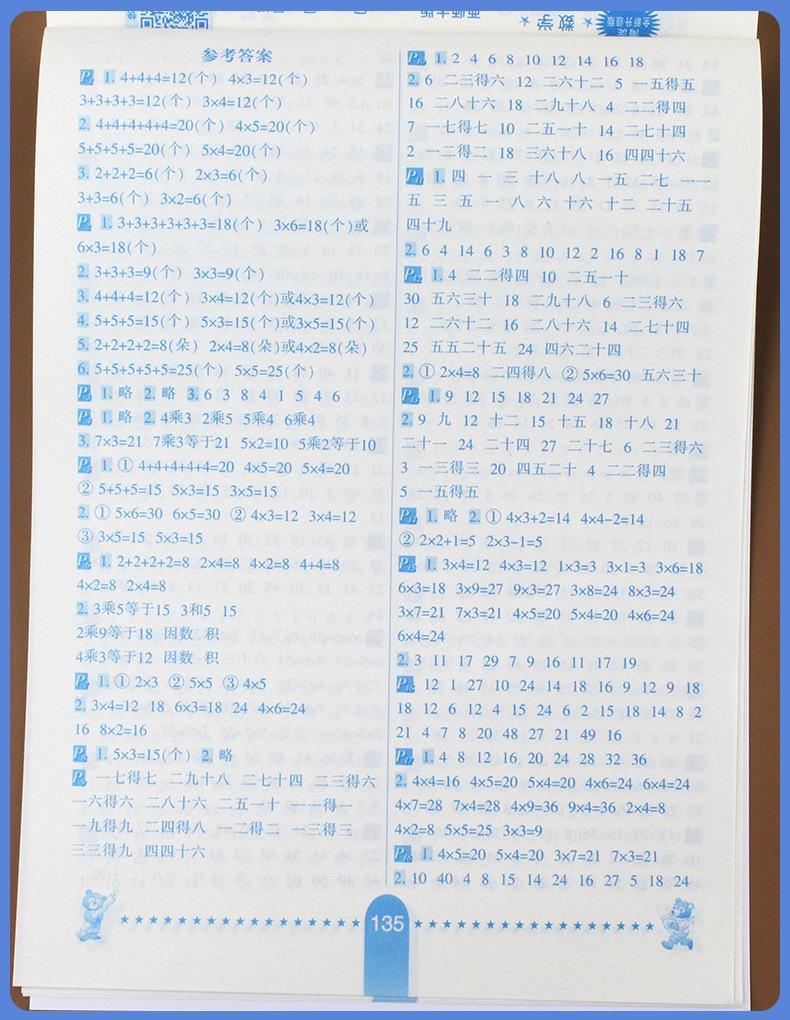 数学
参考答案
P1 1. 4+4+4=12(个) 4×3=12(个)
3+3+3+3=12(个) 3×4=12(个)
2. 4+4+4+4+4=20(个) 4×5=20(个)
5+5+5+5=20(个) 5×4=20(个)
3. 2+2+2=6(个) 2×3=6(个)
3+3=6(个) 3×2=6(个)
1. 3+3+3+3+3+3=18(个) 3×6=18(个)或
6×3=18(个)
2. 3+3+3=9(个) 3×3=9(个)
3. 4+4+4=12(个) 3×4=12(个)或4×3=12(个)
4. 5+5+5=15(个) 5×3=15(个)或3×5=15(个)
5. 2+2+2+2=8(朵) 2×4=8(朵)或4×2=8(朵)
6. 5+5+5+5+5=25(个) 5×5=25(个)
1. 略 2. 略 3. 6 3 8 4 1 5 4 6
1. 略 2. 4乘3 2乘5 5乘4 6乘4
3. 7×3=21 7乘3等于21 5×2=10 5乘2等于10
1. ① 4+4+4+4+4=20 4×5=20 5×4=20
② 5+5+5=15 5×3=15 3×5=15
2. ① 5×6=30 6×5=30 ② 4×3=12 3×4=12
③ 3×5=15 5×3=15
1. 2+2+2+2=8 2×4=8 4×2=8 4+4=8
4×2=8 2×4=8
2. 3乘5等于15 3和5 15
2乘9等于18 因数 积
4乘3等于12 因数 积
1. ① 2×3 ② 5×5 ③ 4×5
2. 3×4=12 18 6×3=18 24 4×6=24
16 8×2=16
1. 5×3=15(个) 2. 略
一七得七 二九十八 二七十四 二三得六
一六得六 二八十六 二五一十 一一得一
一九得九 二四得八 一二得二 一三得三
三三得九 四四十六
P10 1. 2 4 6 8 10 12 14 16 18
2. 6 二三得六 12 二六十二 5 一五得五
16 二八十六 18 二九十八 4 二二得四
7 一七得七 10 二五一十 14 二七十四
2 一二得二 18 三六十八 16 四四十六
P11 1. 四 一 三 十八 八 一五 二七 一一
五 三 五 一 八 六 十六 十二 二十五
四十九
2. 6 4 14 6 3 8 10 12 2 16 8 1 18 7
P12 1. 4 二二得四 10 二五一十
30 五六三十 18 二九十八 6 二三得六
12 二六十二 16 二八十六 14 二七十四
25 五五二十五 24 四六二十四
2. ① 2×4=8 二四得八 ② 5×6=30 五六三十
P13 1. 9 12 15 18 21 24 27
2. 9 九 12 十二 15 十五 18 十八 21
二十一 24 二十四 27 二十七 6 二三得六
3 一三得三 20 四五二十 4 二二得四
5 一五得五
P14 1. 略 2. ① 4×3+2=14 4×4−2=14
② 2×2+1=5 2×3−1=5
P15 1. 3×4=12 4×3=12 1×3=3 3×1=3 3×6=18
6×3=18 3×9=27 9×3=27 3×8=24 8×3=24
3×7=21 7×3=21 4×5=20 5×4=20 4×6=24
6×4=24
2. 3 11 17 29 7 9 16 11 17 19
P16 12 1 27 10 24 14 18 16 9 12 9 18
18 12 6 12 4 15 24 6 2 15 18 14 8 2
21 4 7 8 20 48 27 21 49 16
P17 1. 4 8 12 16 20 24 28 32 36
2. 4×4=16 4×5=20 5×4=20 4×6=24 6×4=24
4×7=28 7×4=28 4×9=36 9×4=36 2×4=8
4×2=8 5×5=25 3×3=9
P18 1. 4×5=20 5×4=20 3×7=21 7×3=21
2. 10 40 4 8 15 14 24 16 27 5 18 24
135